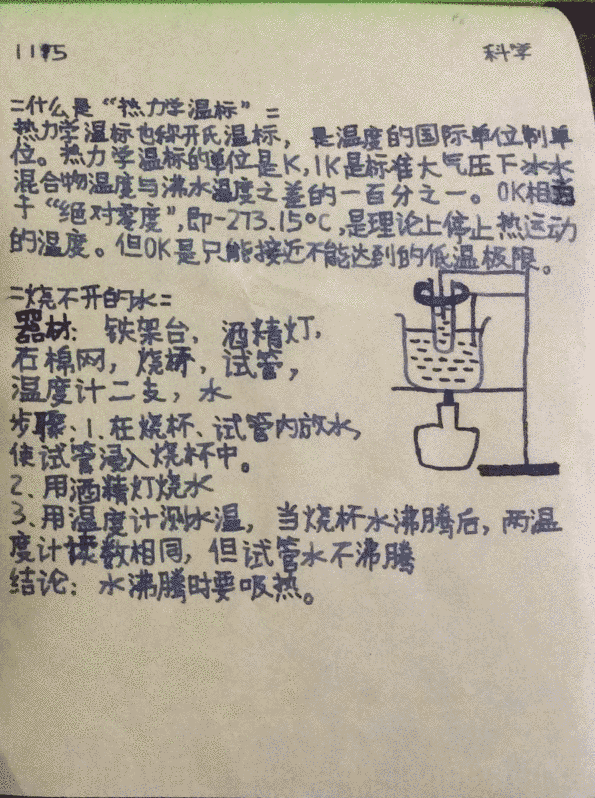 11.5
科学
=什么是“热力学温标”=
热力学温标也称开氏温标，是温度的国际单位制单
位。热力学温标的单位是K，1K是标准大气压下冰水
混合物温度与沸水温度之差的一百分之一。0K相当
于“绝对零度”，即-273.15°C，是理论上停止热运动
的温度。但0K是只能接近不能达到的低温极限。
=烧不开的水=
器材：铁架台，酒精灯，
石棉网，烧杯，试管，
温度计二支，水
步骤：1.在烧杯、试管内放水，
使试管浸入烧杯中。
2、用酒精灯烧水
3、用温度计测水温，当烧杯水沸腾后，两温
度计读数相同，但试管水不沸腾
结论：水沸腾时要吸热。